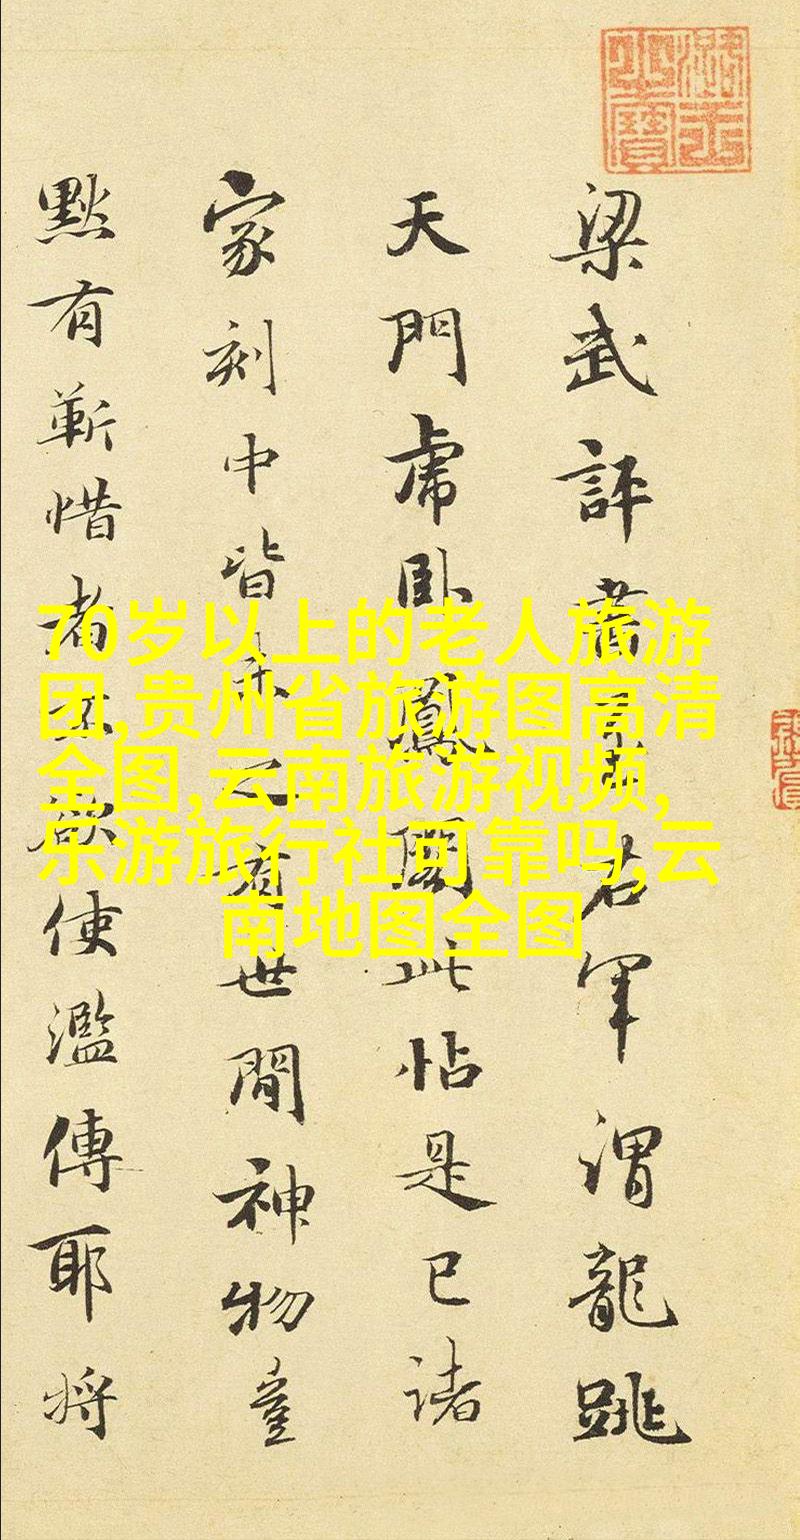 潞王之寶
梁武評書右軍謂龍跳
天門虎卧鳳閣此帖是已諸
家刻中皆未之有世間神物豈
黙有靳惜者不欲使濫傳耶將
70岁以上的老人旅游
团,贵州省旅游图高清
全图,云南旅游视频,
乐游旅行社可靠吗,云
南地图全图